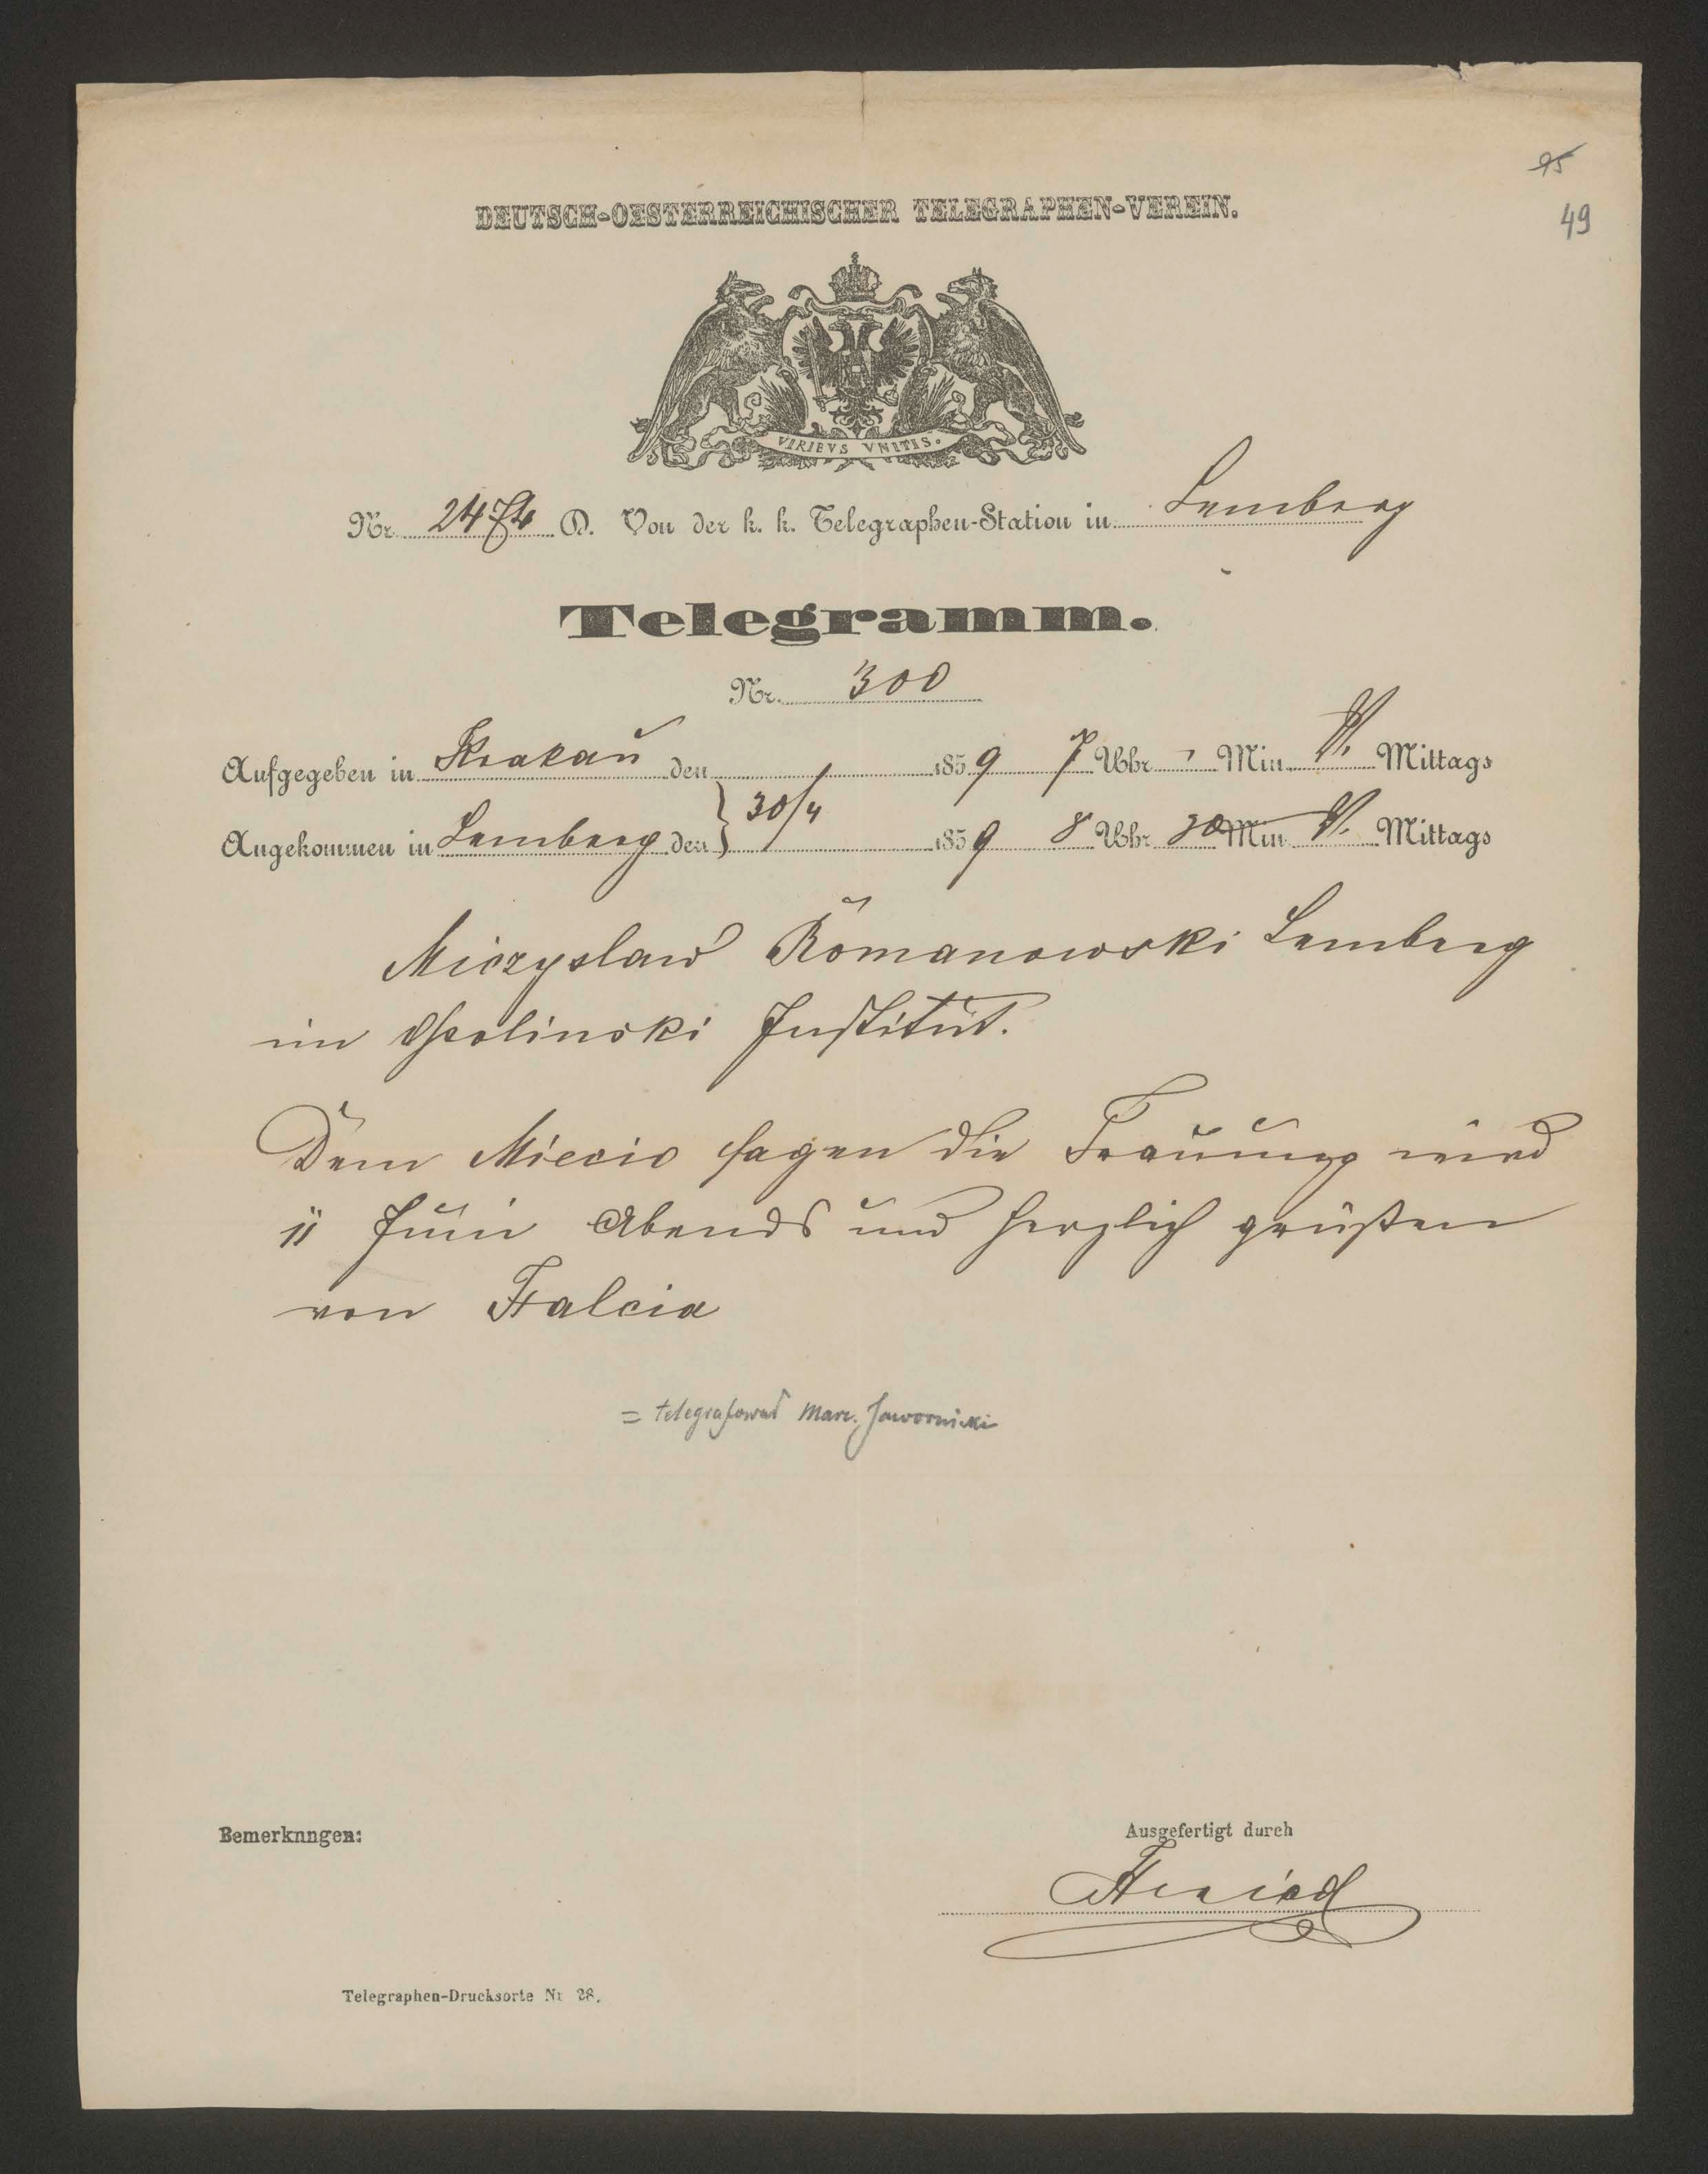 95
49
DEUTSCH-OESTERREICHISCHER TELEGRAPHEN-VEREIN.
VIRIBVS VNITIS.
Nr. 2474 D. Von der k. k. Telegraphen-Station in Lemberg
Telegramm.
Nr. 300
Aufgegeben in Krakau den 1859 7 Uhr - Min. N. Mittags
Angekommen in Lemberg den } 30/4 1859 8 Uhr 30 Min N. Mittags
Miczyslaw Romanowski Lemberg
im Ossolinski Institut.
Dem Miecio sagen die Trauung wird
11 Juni Abends und herzlich grüßen
von Falcia
= telegrafował Marc. Jawornicki
Bemerknngen:
Ausgefertigt durch
Telegraphen-Drucksorte Nr 28.